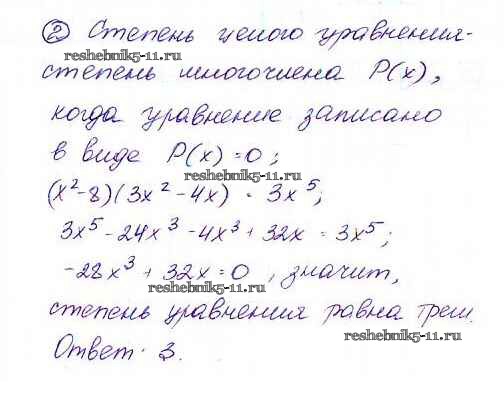 ② Степень целого уравнения-
reshebnik5-11.ru
степень многочлена P(x),
когда уравнение записано
в виде P(x)=0;
reshebnik5-11.ru
(x²-8)(3x²-4x) = 3x⁵;
3x⁵-24x³-4x³+32x = 3x⁵;
-28x³+32x=0, значит,
reshebnik5-11.ru
степень уравнения равна трем.
reshebnik5-11.ru
Ответ: 3.